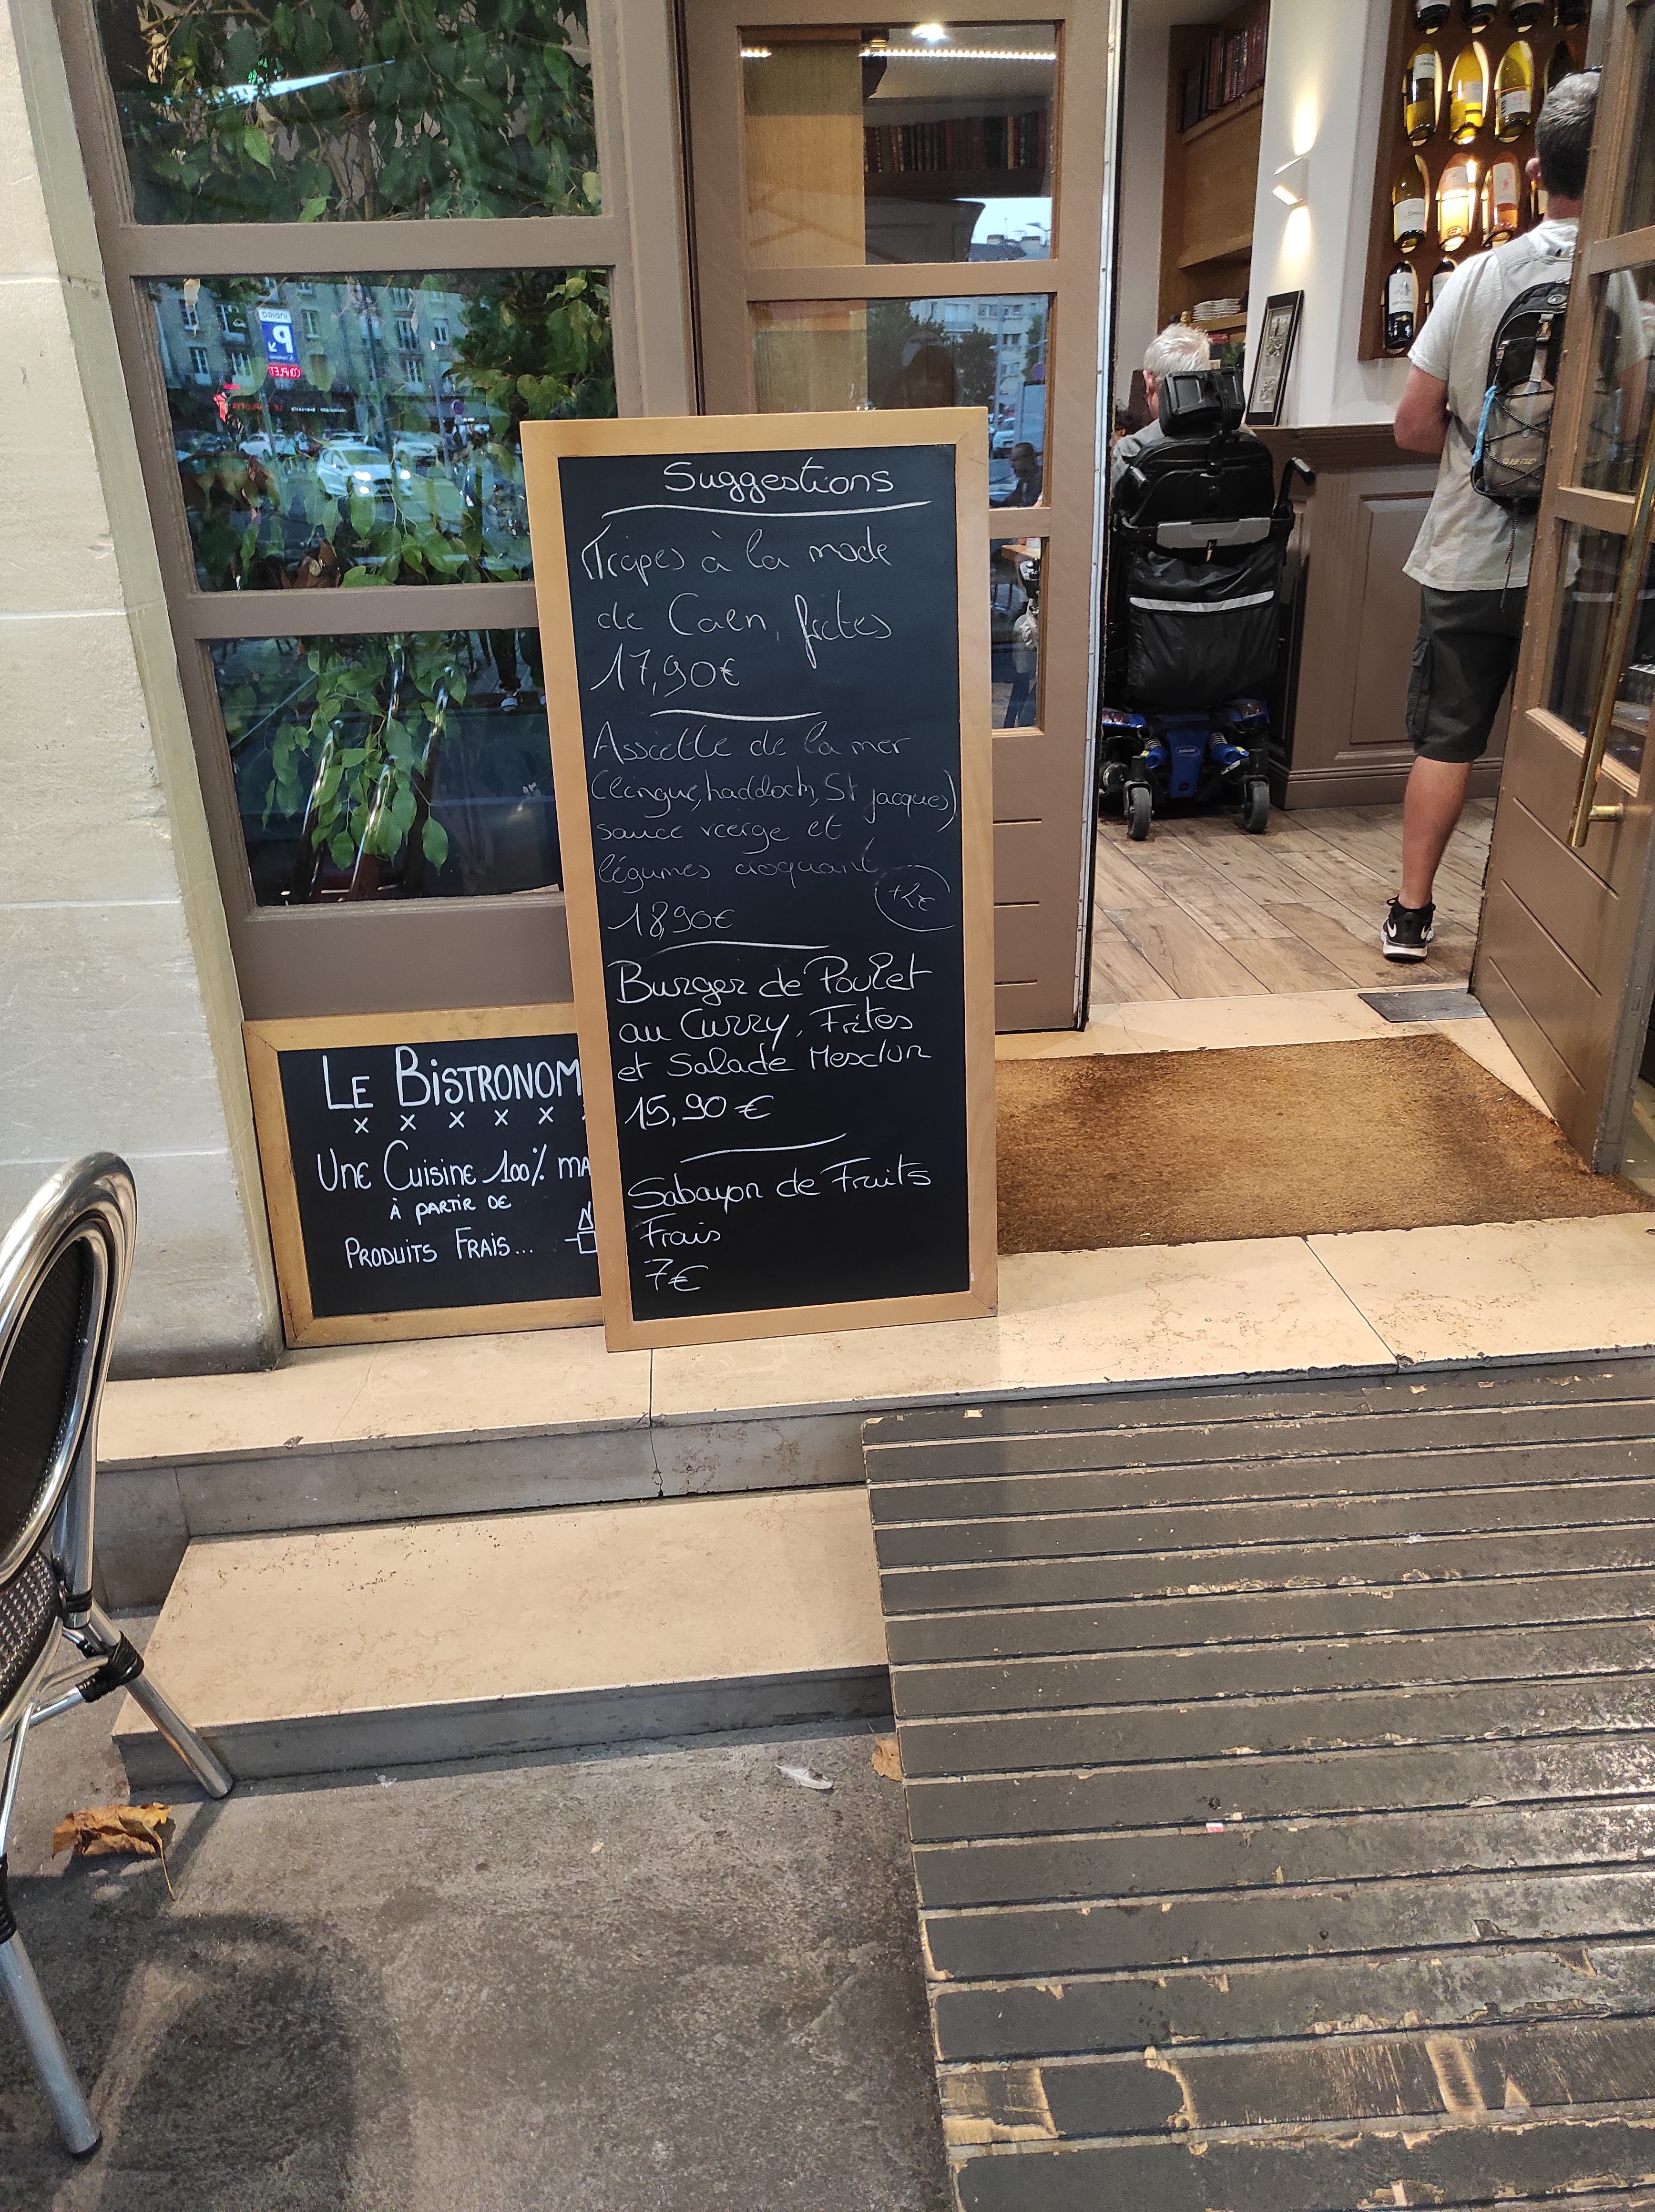 Suggestions
Tripes à la mode
de Caen, frites
17,90€
Assiette de la mer
(lingue, haddock, St jacques)
sauce vierge et
légumes croquant
+2€
18,90€
Burger de Poulet
au Curry, Frites
et Salade Mesclun
15,90€
Sabayon de Fruits
Frais
7€
LE BISTRONOM
x x x x x
UNE CUISINE 100% MA
À PARTIR DE
PRODUITS FRAIS...
INDIGO
P
HI-TEC